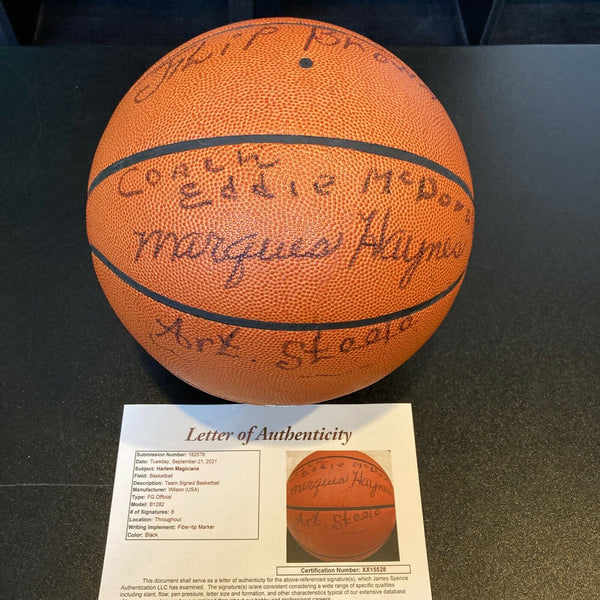 Brown
COACH
Eddie McDon
Marques Haynes
Art. Steele
Letter of Authenticity
Submission Number: 182578
Date: Tuesday, September 21, 2021
Subject: Harlem Magicians
Field: Basketball
Description: Team Signed Basketball
Manufacturer: Wilson (USA)
Type: FG Official
Model: B1282
# of Signatures: 8
Location: Throughout
Writing Implement: Fiber-tip Marker
Color: Black
Eddie McD
Marques Haynes
Art. Steele
Certification Number: XX15528
This document shall serve as a letter of authenticity for the above-referenced signature(s), which James Spence
Authentication LLC has examined. The signature(s) is/are consistent considering a wide range of specific qualities
including slant, flow, pen pressure, letter size and formation, and other characteristics typical of our extensive database